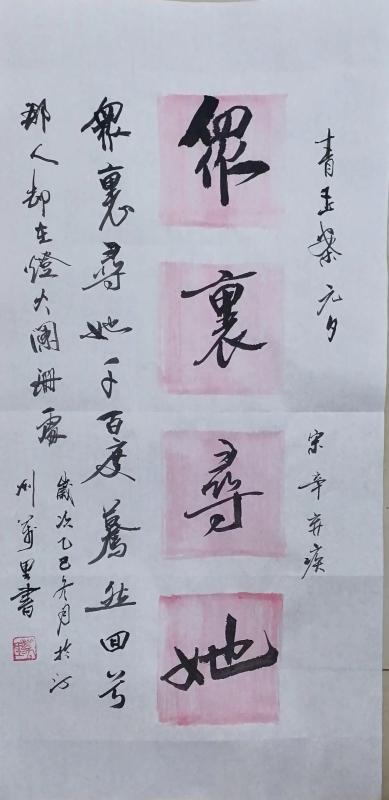 青玉案 元夕
宋 辛弃疾
眾裏尋她
眾裏尋她千百度驀然回首
那人卻在燈火闌珊處
歲次乙巳冬月於
萬里書